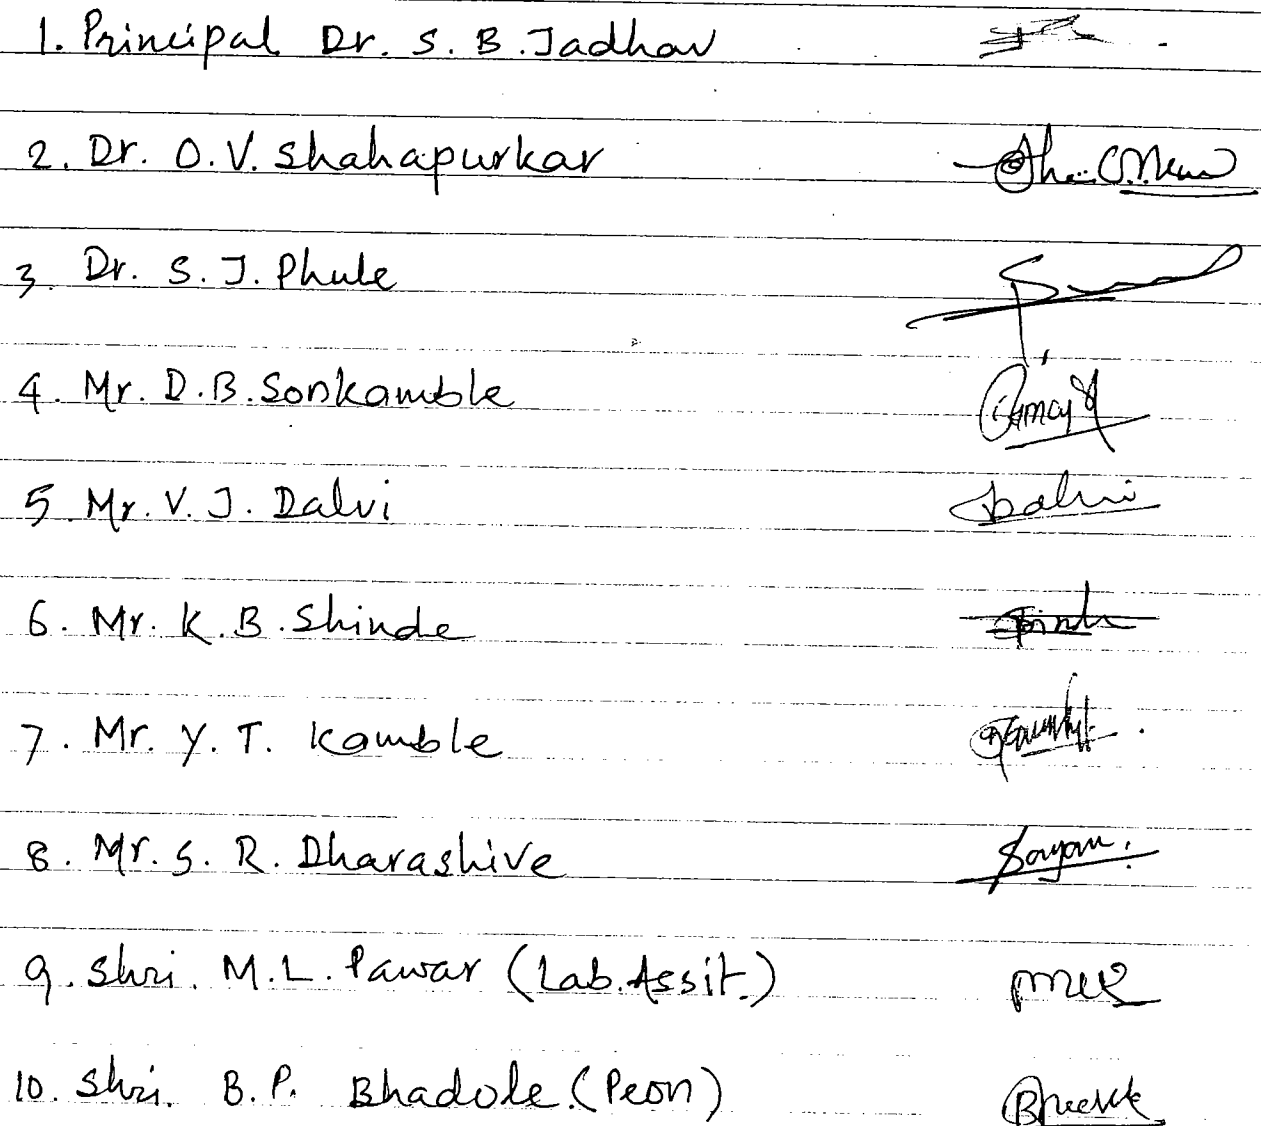 1. Principal Dr. S. B. Jadhav
2. Dr. O. V. Shahapurkar
3. Dr. S. J. Phule
4. Mr. D. B. Sonkamble
5. Mr. V. J. Dalvi
6. Mr. K. B. Shinde
7. Mr. Y. T. Kamble
8. Mr. S. R. Dharashive
9. Shri. M. L. Pawar (Lab. Assit.)
10. Shri. B. P. Bhadole (Peon)